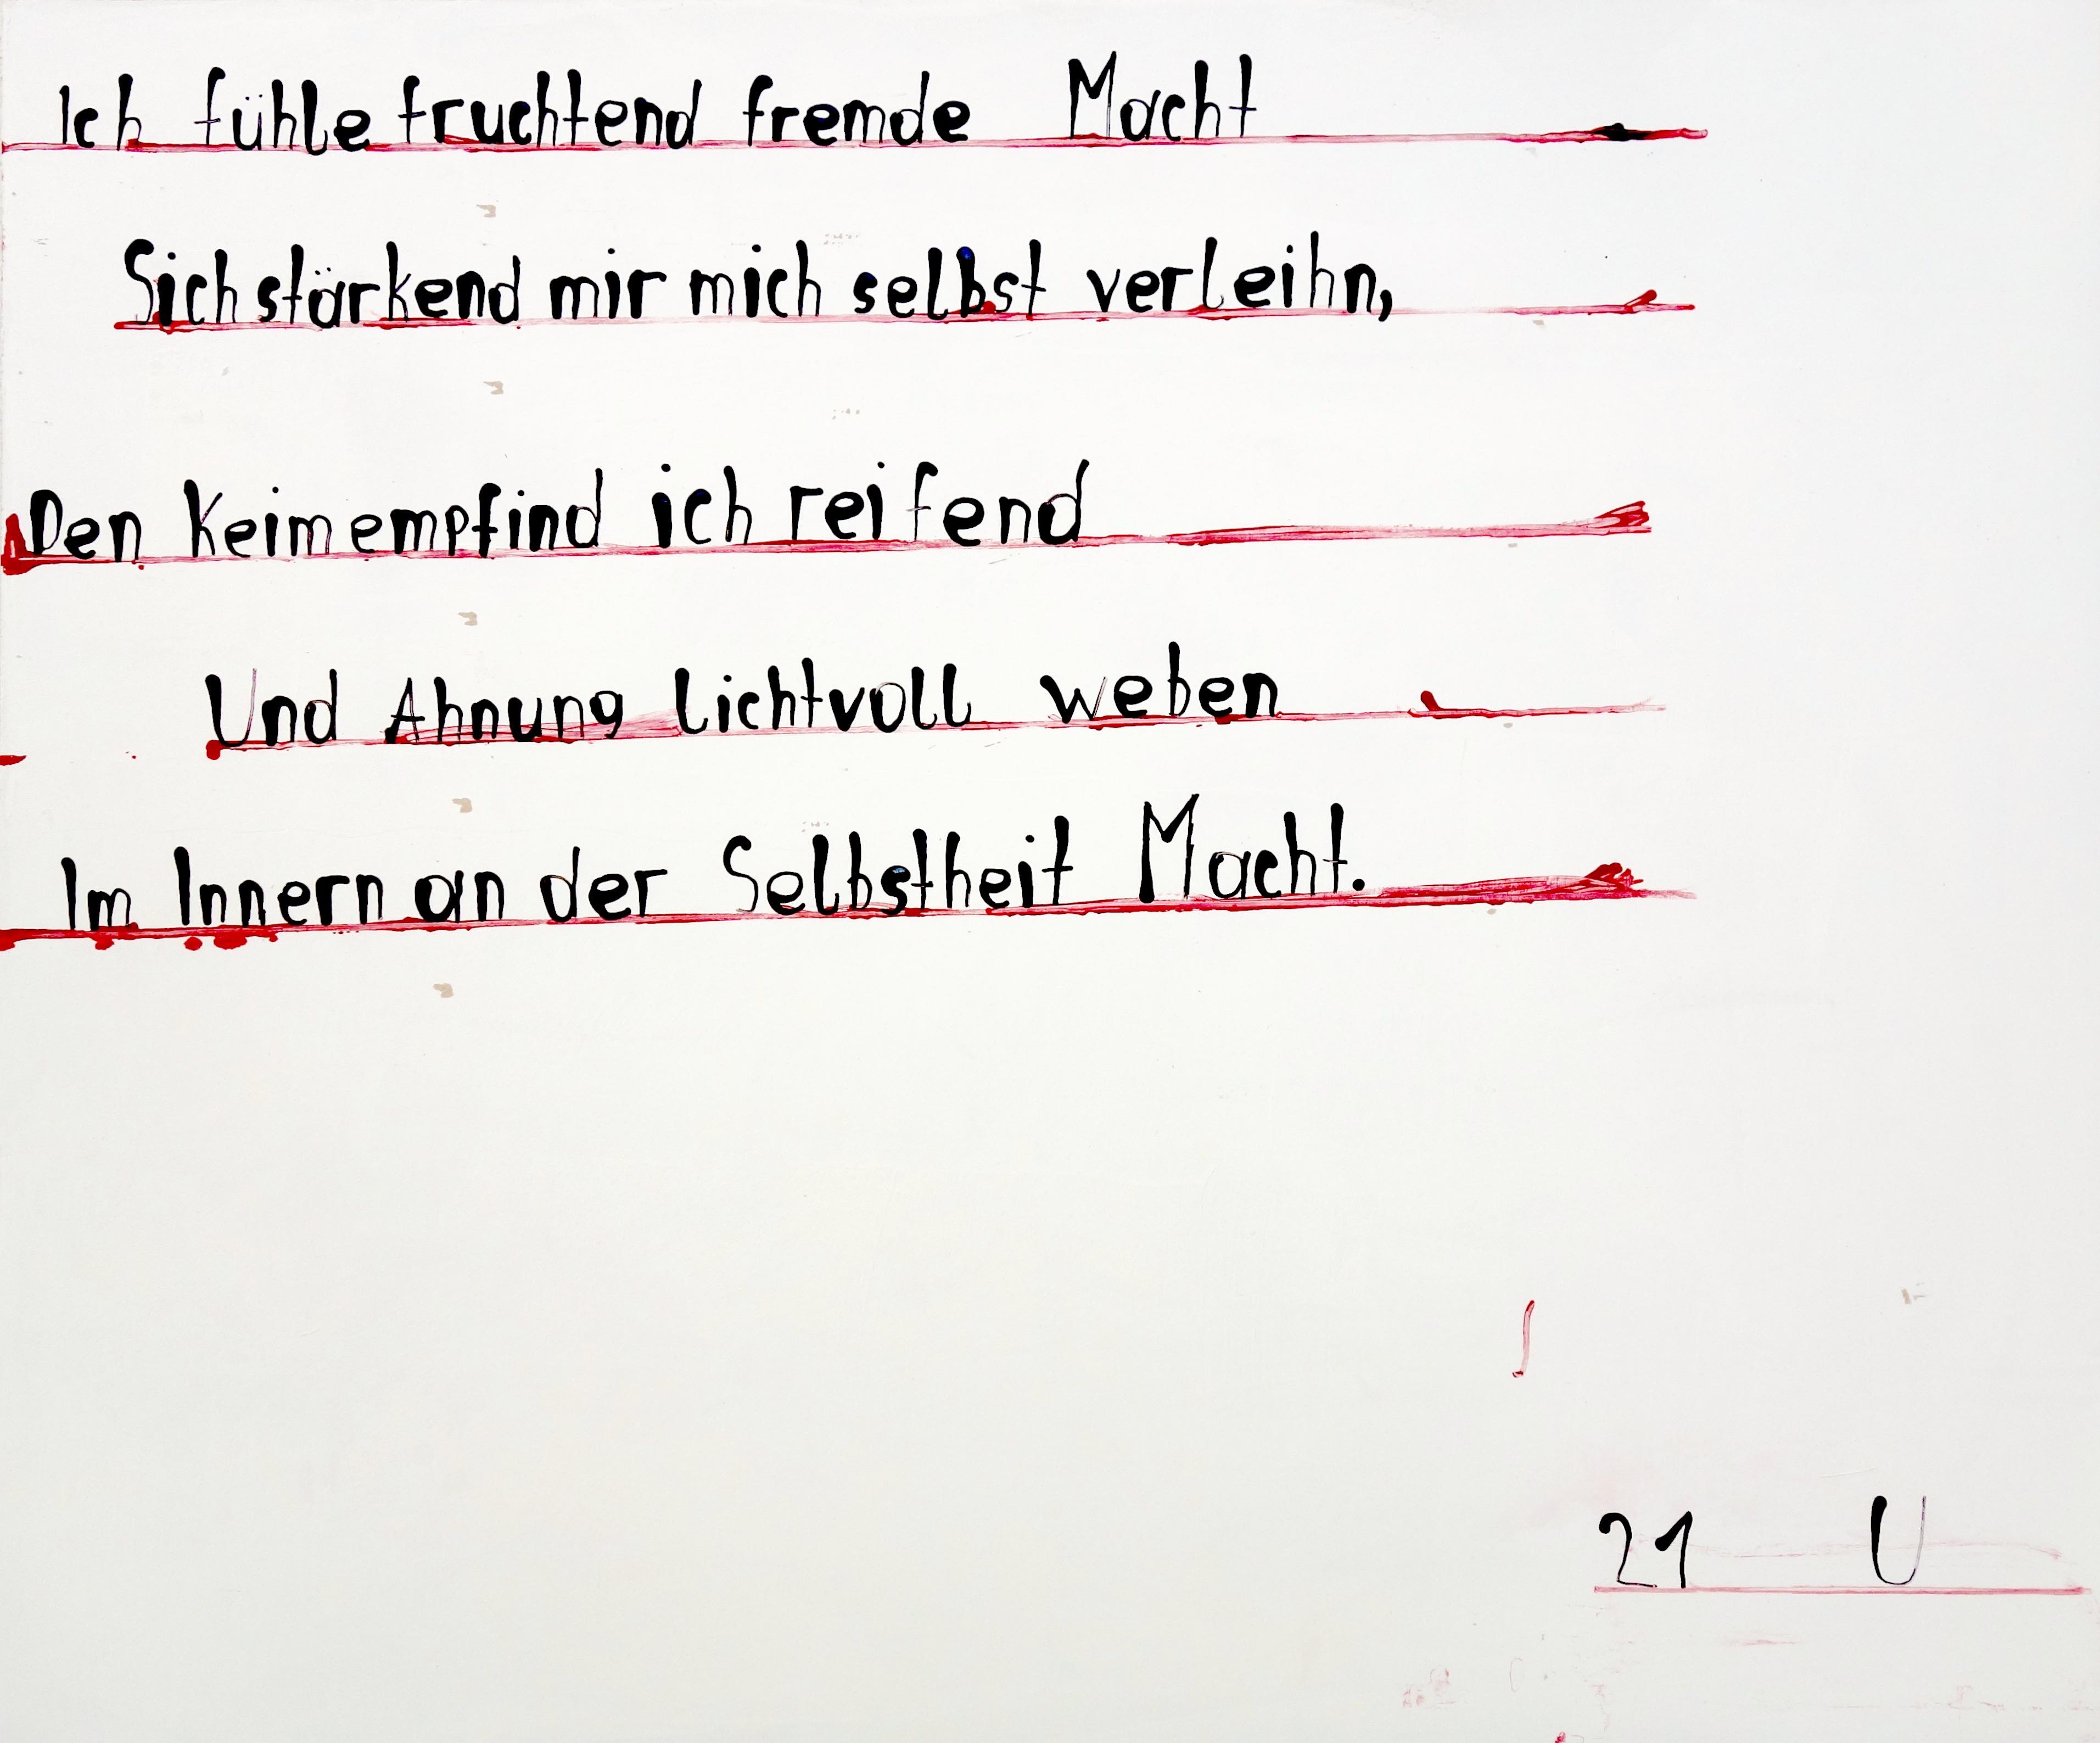 Ich fühle fruchtend fremde Macht
Sich stärkend mir mich selbst verleihn,
Den Keim empfind ich reifend
Und Ahnung lichtvoll weben
Im Innern an der Selbstheit Macht.
21 U